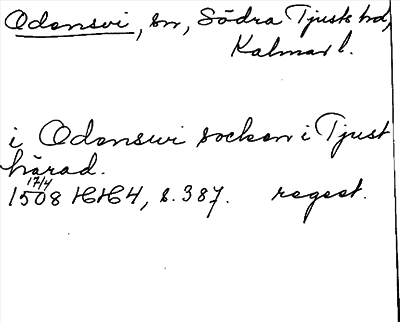 Odensvi, sn, Södra Tjusts hd,
Kalmar l.
i Odenswi socken i Tjust
härad.
17/4
1508 HH4, s. 387. regest.